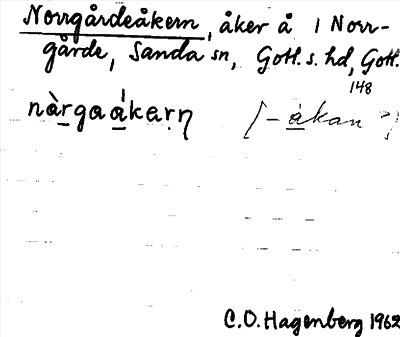 Norrgårdeåkern, åker å 1 Norr-
gårde, Sanda sn, Gotl. s. hd, Gotl.
148
nàrgaákaṛn [-åkan ?]
C.O. Hagenberg 1962